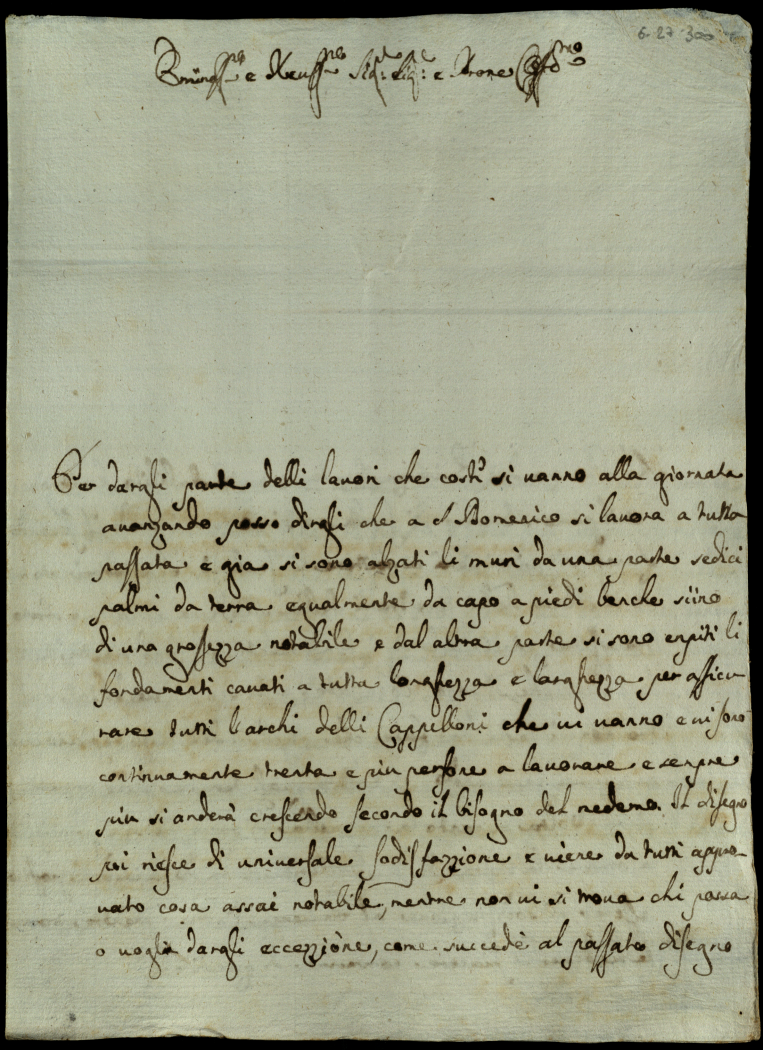 6-27-300
Eminmo e Revmo Sigre Sigre e Prone Colmo
Per dargli parte delli lauori che costì si uanno alla giornata
auanzando posso dirgli che a S Domenico si lauora a tutta
passata e gia si sono alzati li muri da una parte sedici
palmi da terra egualmente da capo a piedi benche siino
di una grossezza notabile e dal altra parte si sono empiti li
fondamenti cauati a tutta longhezza e larghezza per assicu
rare tutti l'archi delli Cappelloni che ui uanno e ui sono
continuamente trenta e più persone a lauorare e sempre
più si anderà crescendo secondo il bisogno del medemo. Il disegno
poi riesce di uniuersale sodisfazzione e uiene da tutti appro-
uato cosa assai notabile, mentre non ui si troua chi possa
o uoglia dargli eccezzione, come succedè al passato disegno